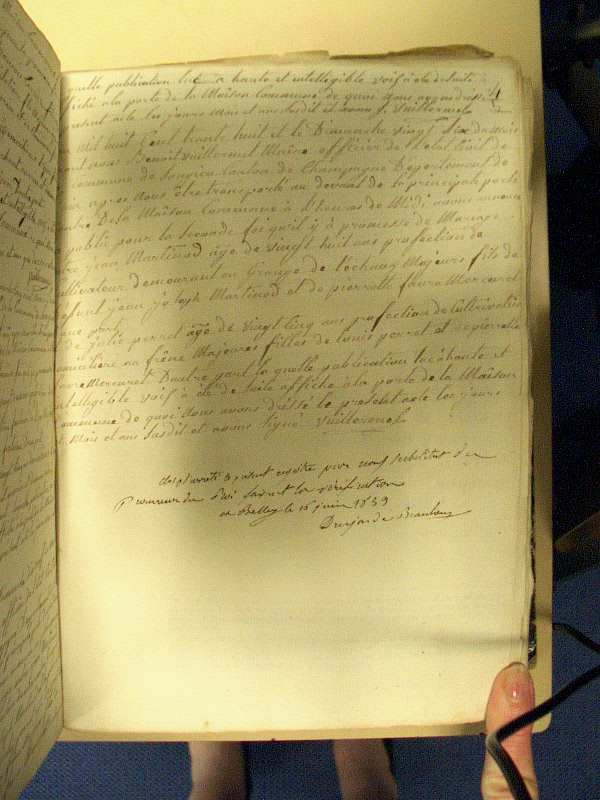 quelle publication lue a haute et intelligible voix à été de suite
fiché a la porte de la Maison Commune de quoi nous avons dressé
présent acte les jours Mois et ans susdit et avons S. Vuillermet
mil huit Cent trente huit et le Dimanche vingt Six du Mois
nous Benoit Vuillermet Maire officier de l'état Civil de
commune de Songieu Canton de Champagne Département de
in apres Nous être transporté au devant de la principale porte
De la Maison Commune à heures de Midi avons annoncé
public pour la seconde fois qu'il y à promesse de Mariage
tre jean Martinod âgé de vingt huit ans profession de
ultivateur demeurant au Grange de Majeurs fils de
efunt jean joseph Martinod et de pierrette favre Mercuret
une part
de julie perret âgé de vingt cinq ans profession de Cultivatrice
omiciliée au frêne Majeures filles de louis perret et de pierrette
avre Mercuret Dautre part la quelle publication lue a haute et
ntelligible voix à été de suite affiche a la porte de la Maison
ommune de quoi Nous avons dréssé le présent acte les jours
t Mois et ans Susdit et avons Signé Vuillermet
clos et arrêté le présent registre par nous substitut du
Procureur du Roi faisant la vérification
à Belley le 15 juin 1839